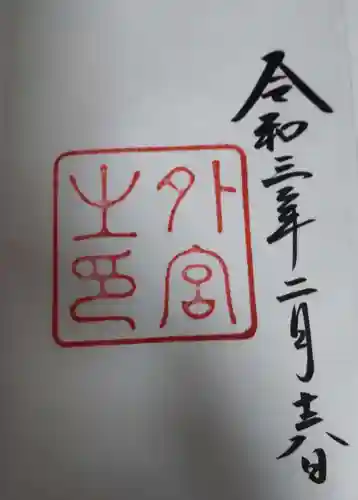 令和三年二月十六日
外宮
之印